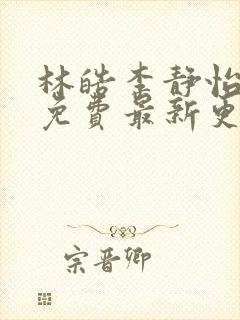 林皓李静怡
免费最新更
宗晋卿